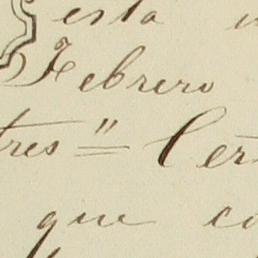 esta
Febrero
tres" = Cer
que co